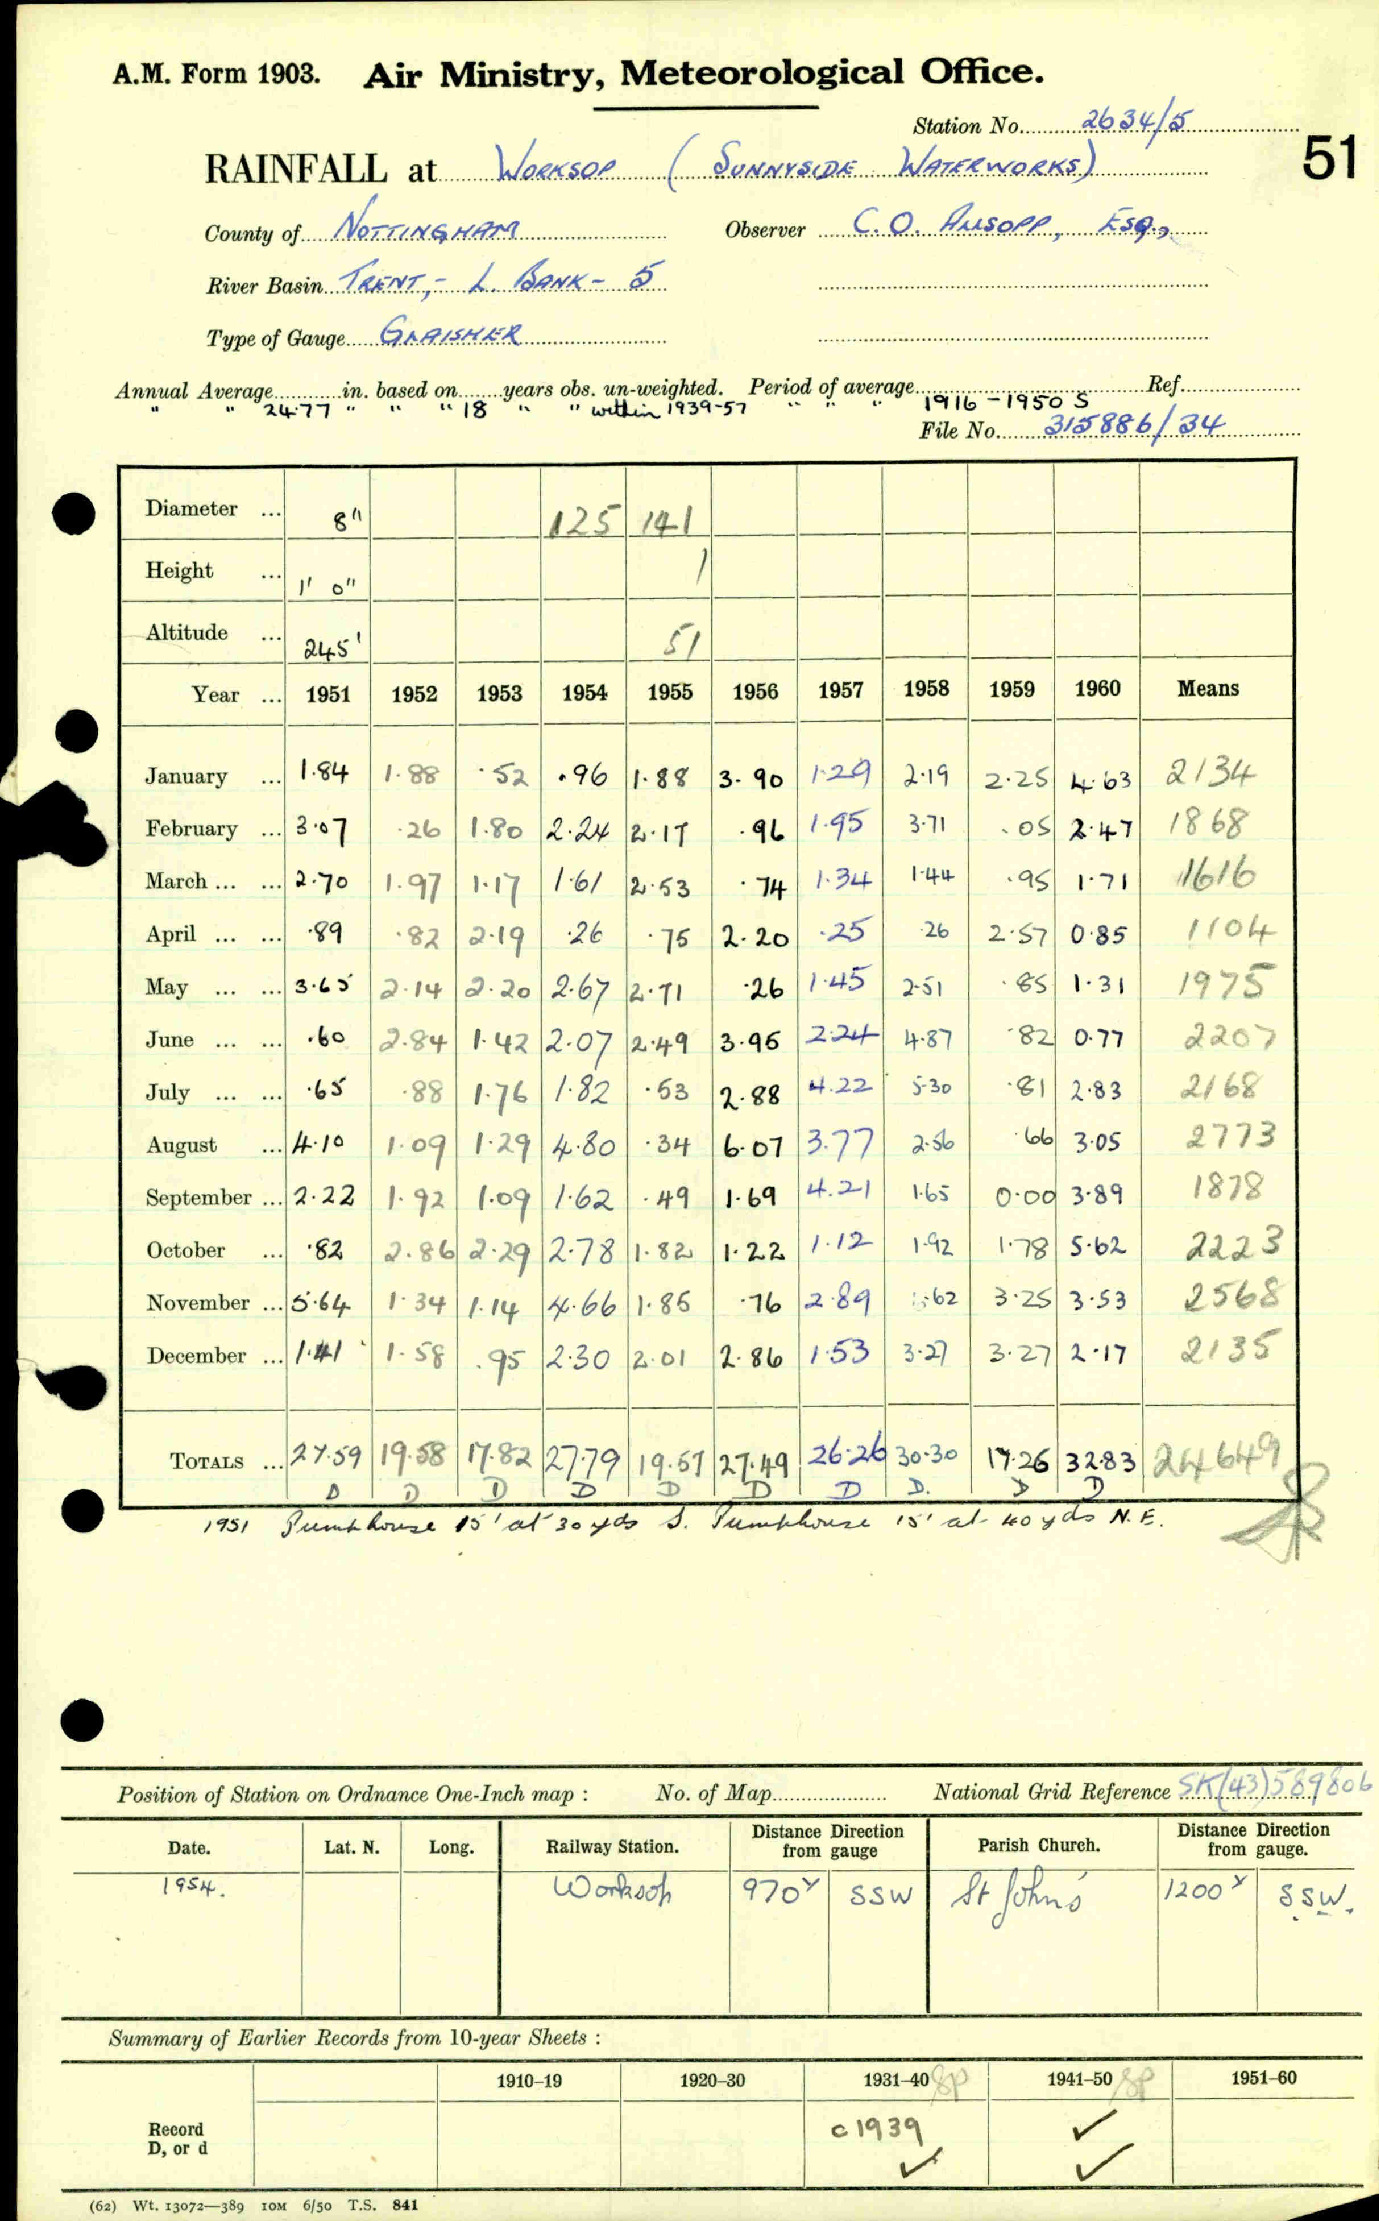 A.M. Form 1903. Air Ministry, Meteorological Office.
Station No. 2634/5
RAINFALL at Worksop (Sunnyside Waterworks)
51
County of Nottingham Observer C.O. Allsopp, Esq.,
River Basin Trent,- L. Bank - 5
Type of Gauge Glaisher
Annual Average in. based on years obs. un-weighted. Period of average Ref.
" " 24.77 " " " 18 " " within 1939-57 " " " 1916-1950 S
File No. 315886/34
Diameter ... 8" 125 141
Height ... 1' 0" 1
Altitude ... 245' 51
Year ... 1951 1952 1953 1954 1955 1956 1957 1958 1959 1960 Means
January ... 1.84 1.88 .52 .96 1.88 3.90 1.29 2.19 2.25 4.63 2134
February ... 3.07 .26 1.80 2.24 2.17 .96 1.95 3.71 .05 2.47 1868
March ... ... 2.70 1.97 1.17 1.61 2.53 .74 1.34 1.44 .95 1.71 1616
April ... ... .89 .82 2.19 .26 .75 2.20 .25 .26 2.57 0.85 1104
May ... ... 3.65 2.14 2.20 2.67 2.71 .26 1.45 2.51 .85 1.31 1975
June ... ... .60 2.84 1.42 2.07 2.49 3.95 2.24 4.87 .82 0.77 2207
July ... ... .65 .88 1.76 1.82 .53 2.88 4.22 5.30 .81 2.83 2168
August ... 4.10 1.09 1.29 4.80 .34 6.07 3.77 2.56 .66 3.05 2773
September ... 2.22 1.92 1.09 1.62 .49 1.69 4.21 1.65 0.00 3.89 1878
October ... .82 2.86 2.29 2.78 1.82 1.22 1.12 1.92 1.78 5.62 2223
November ... 5.64 1.34 1.14 4.66 1.85 .76 2.89 .62 3.25 3.53 2568
December ... 1.41 1.58 .95 2.30 2.01 2.86 1.53 3.27 3.27 2.17 2135
Totals ... 27.59 19.58 17.82 27.79 19.57 27.49 26.26 30.30 17.26 32.83 24649
D D D D D D D D. D D
1951 Pumphouse 15' at 30 yds S. Pumphouse 15' at 40 yds N.E.
Position of Station on Ordnance One-Inch map : No. of Map National Grid Reference SK(43)589806
Date. Lat. N. Long. Railway Station. Distance from gauge Direction Parish Church. Distance from gauge. Direction
1954. Worksop 970x SSW St John's 1200x SSW.
Summary of Earlier Records from 10-year Sheets :
1910–19 1920–30 1931–40 SP 1941–50 SP 1951–60
Record c1939 ✓
D, or d ✓ ✓
(62) Wt. 13072—389 10M 6/50 T.S. 841